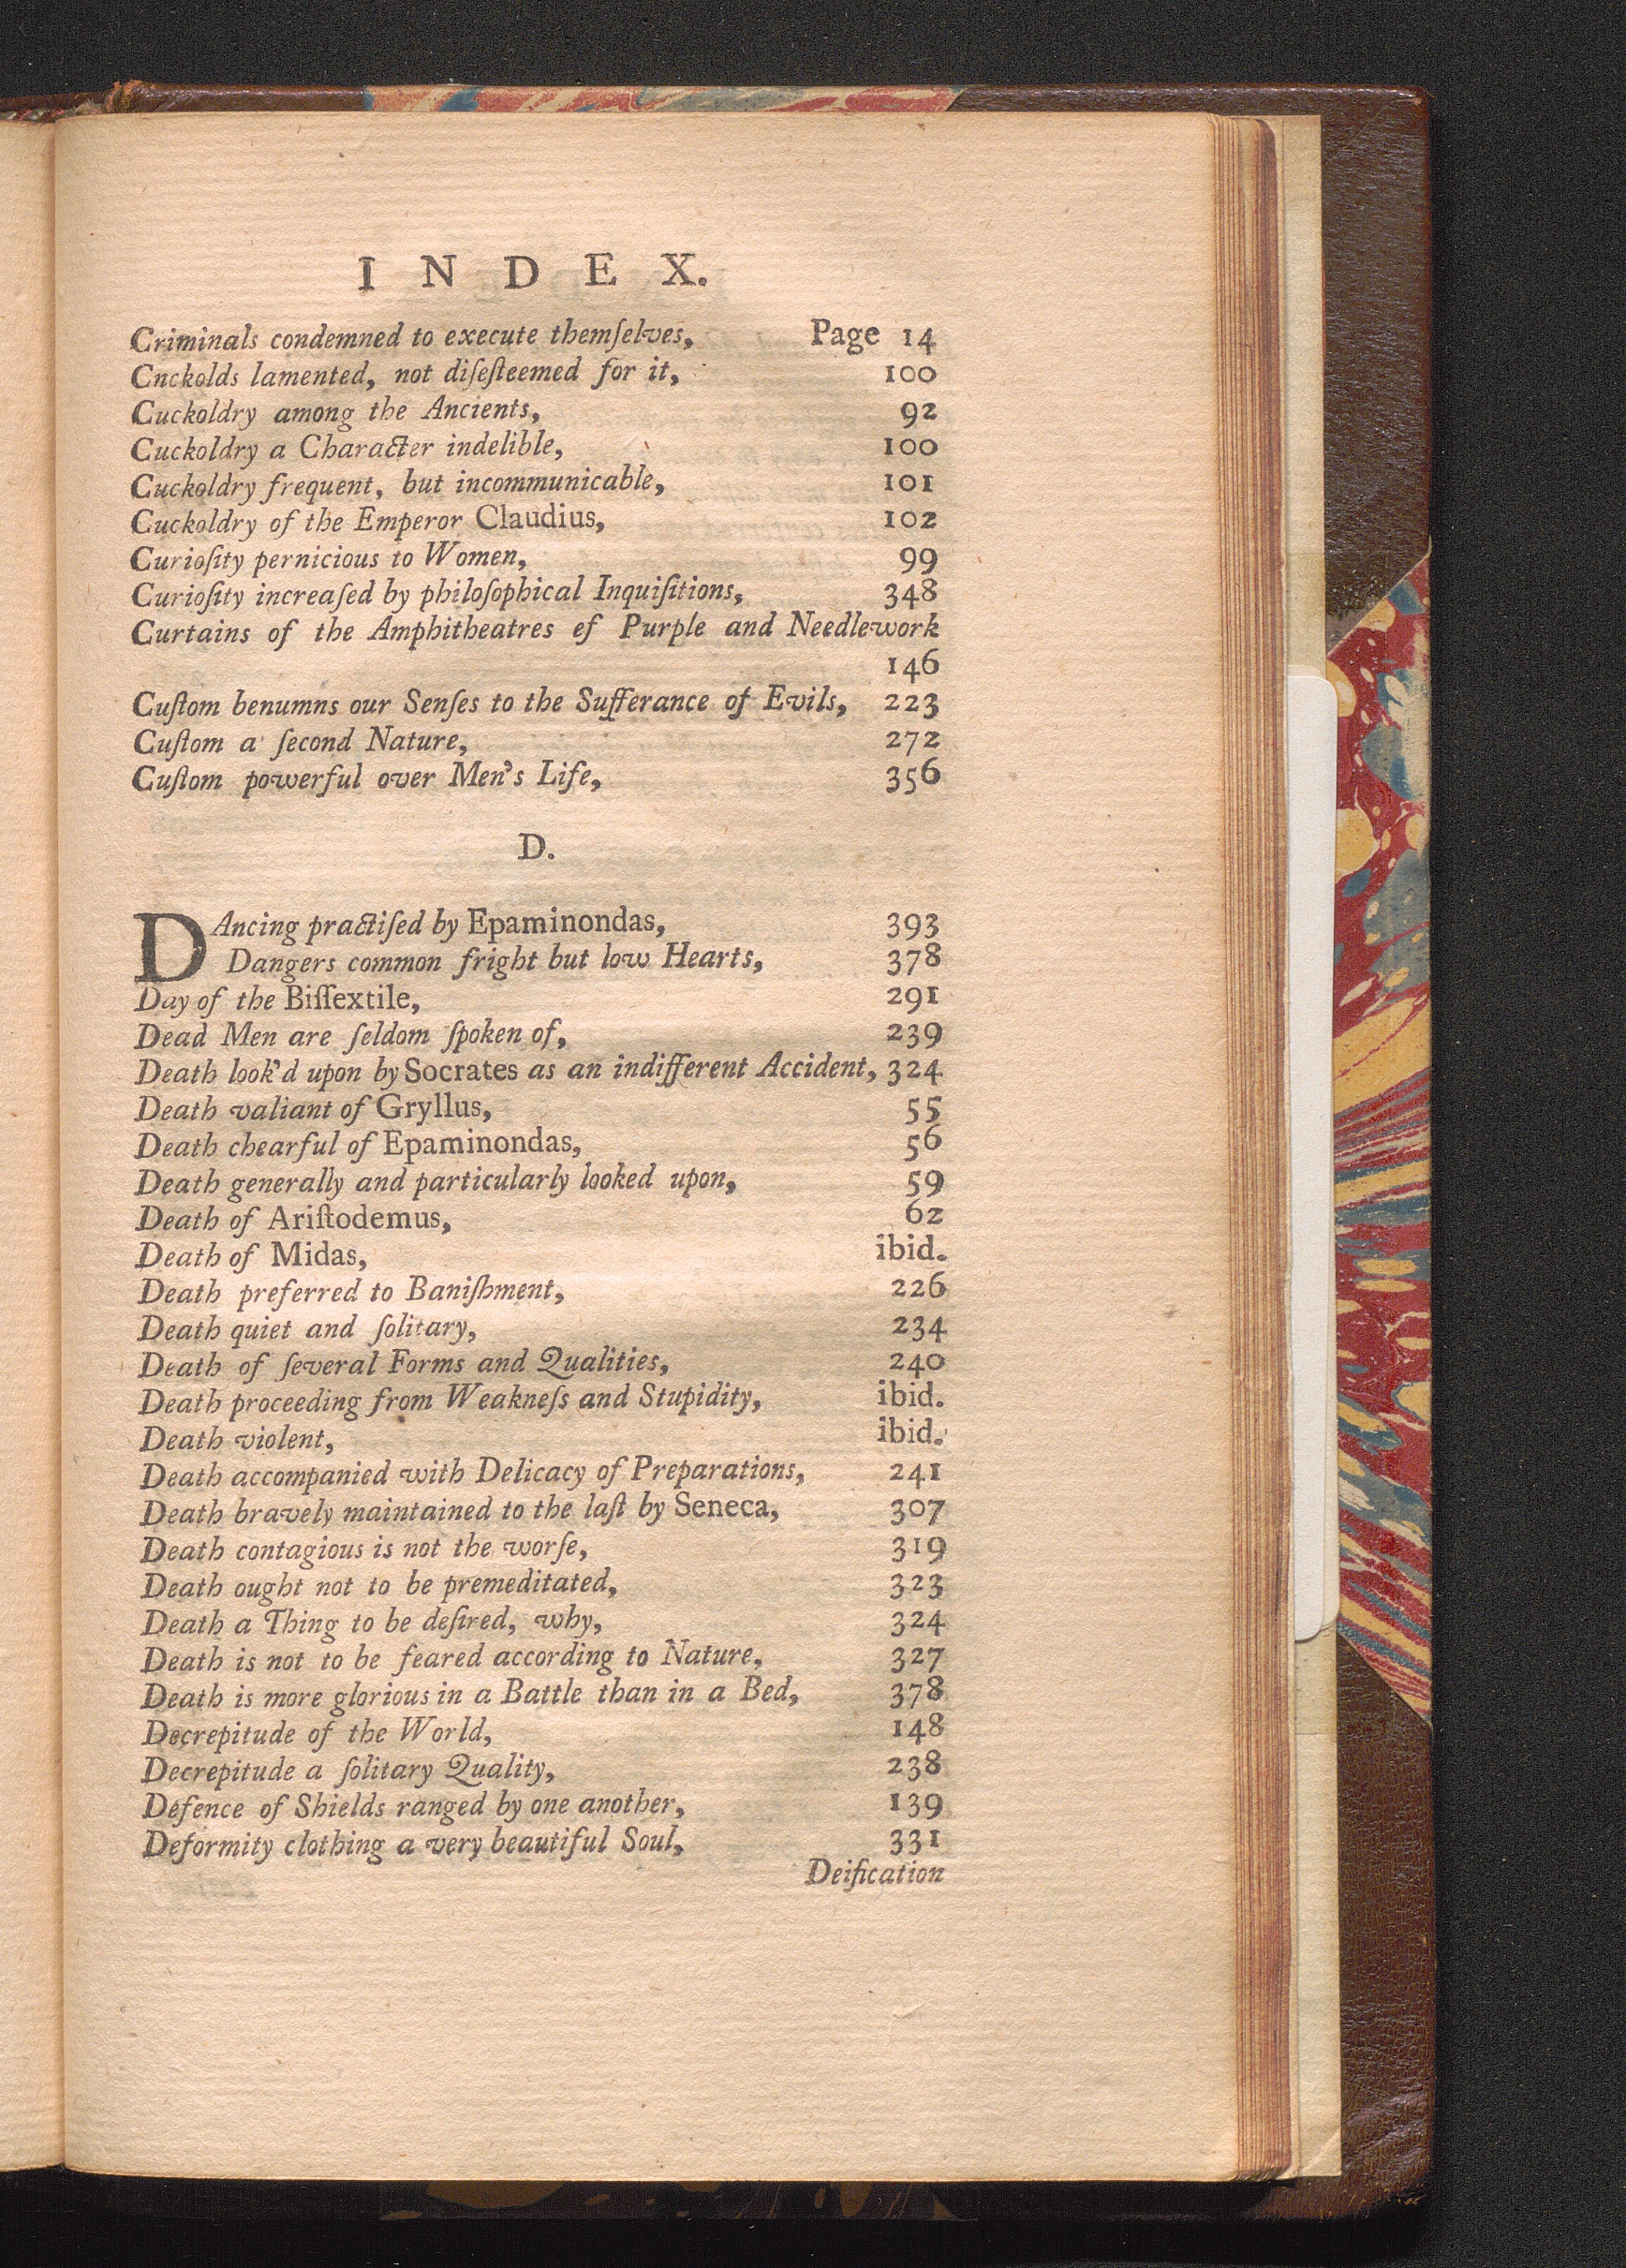 INDEX.
Criminals condemned to execute themſelves, Page 14
Cnckolds lamented, not diſeſteemed for it, 100
Cuckoldry among the Ancients, 92
Cuckoldry a Character indelible, 100
Cuckoldry frequent, but incommunicable, 101
Cuckoldry of the Emperor Claudius, 102
Curioſity pernicious to Women, 99
Curioſity increaſed by philoſophical Inquiſitions, 348
Curtains of the Amphitheatres ef Purple and Needlework
146
Cuſtom benumns our Senſes to the Sufferance of Evils, 223
Cuſtom a ſecond Nature, 272
Cuſtom powerful over Men's Life, 356
D.
DAncing practiſed by Epaminondas, 393
Dangers common fright but low Hearts, 378
Day of the Biſſextile, 291
Dead Men are ſeldom ſpoken of, 239
Death look'd upon by Socrates as an indifferent Accident, 324
Death valiant of Gryllus, 55
Death chearful of Epaminondas, 56
Death generally and particularly looked upon, 59
Death of Ariſtodemus, 62
Death of Midas, ibid.
Death preferred to Baniſhment, 226
Death quiet and ſolitary, 234
Death of ſeveral Forms and Qualities, 240
Death proceeding from Weakneſs and Stupidity, ibid.
Death violent, ibid.
Death accompanied with Delicacy of Preparations, 241
Death bravely maintained to the laſt by Seneca, 307
Death contagious is not the worſe, 319
Death ought not to be premeditated, 323
Death a Thing to be deſired, why, 324
Death is not to be feared according to Nature, 327
Death is more glorious in a Battle than in a Bed, 378
Decrepitude of the World, 148
Decrepitude a ſolitary Quality, 238
Defence of Shields ranged by one another, 139
Deformity clothing a very beautiful Soul, 331
Deification